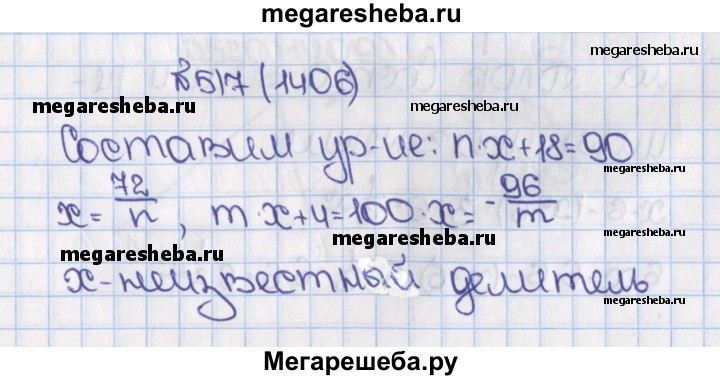 megaresheba.ru
megaresheba.ru
№517 (1406)
megaresheba.ru megaresheba.ru
Составим ур-ие: n·x+18=90
x = 72/n, m·x+4=100·x= -96/m
megaresheba.ru megaresheba.ru
x-неизвестный делитель
megaresheba.ru
Мегарешеба.ру